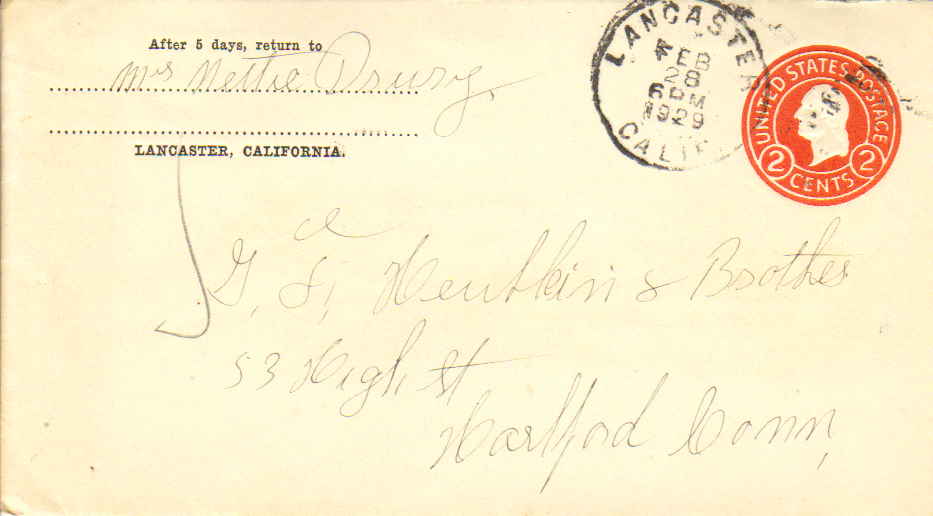 After 5 days, return to
Mrs Nettie Drury,
LANCASTER, CALIFORNIA.
LANCASTER
FEB
28
6 PM
1929
CALIF.
UNITED STATES POSTAGE
2 CENTS 2
G. F. Heublein & Brother
53 High St
Hartford Conn,